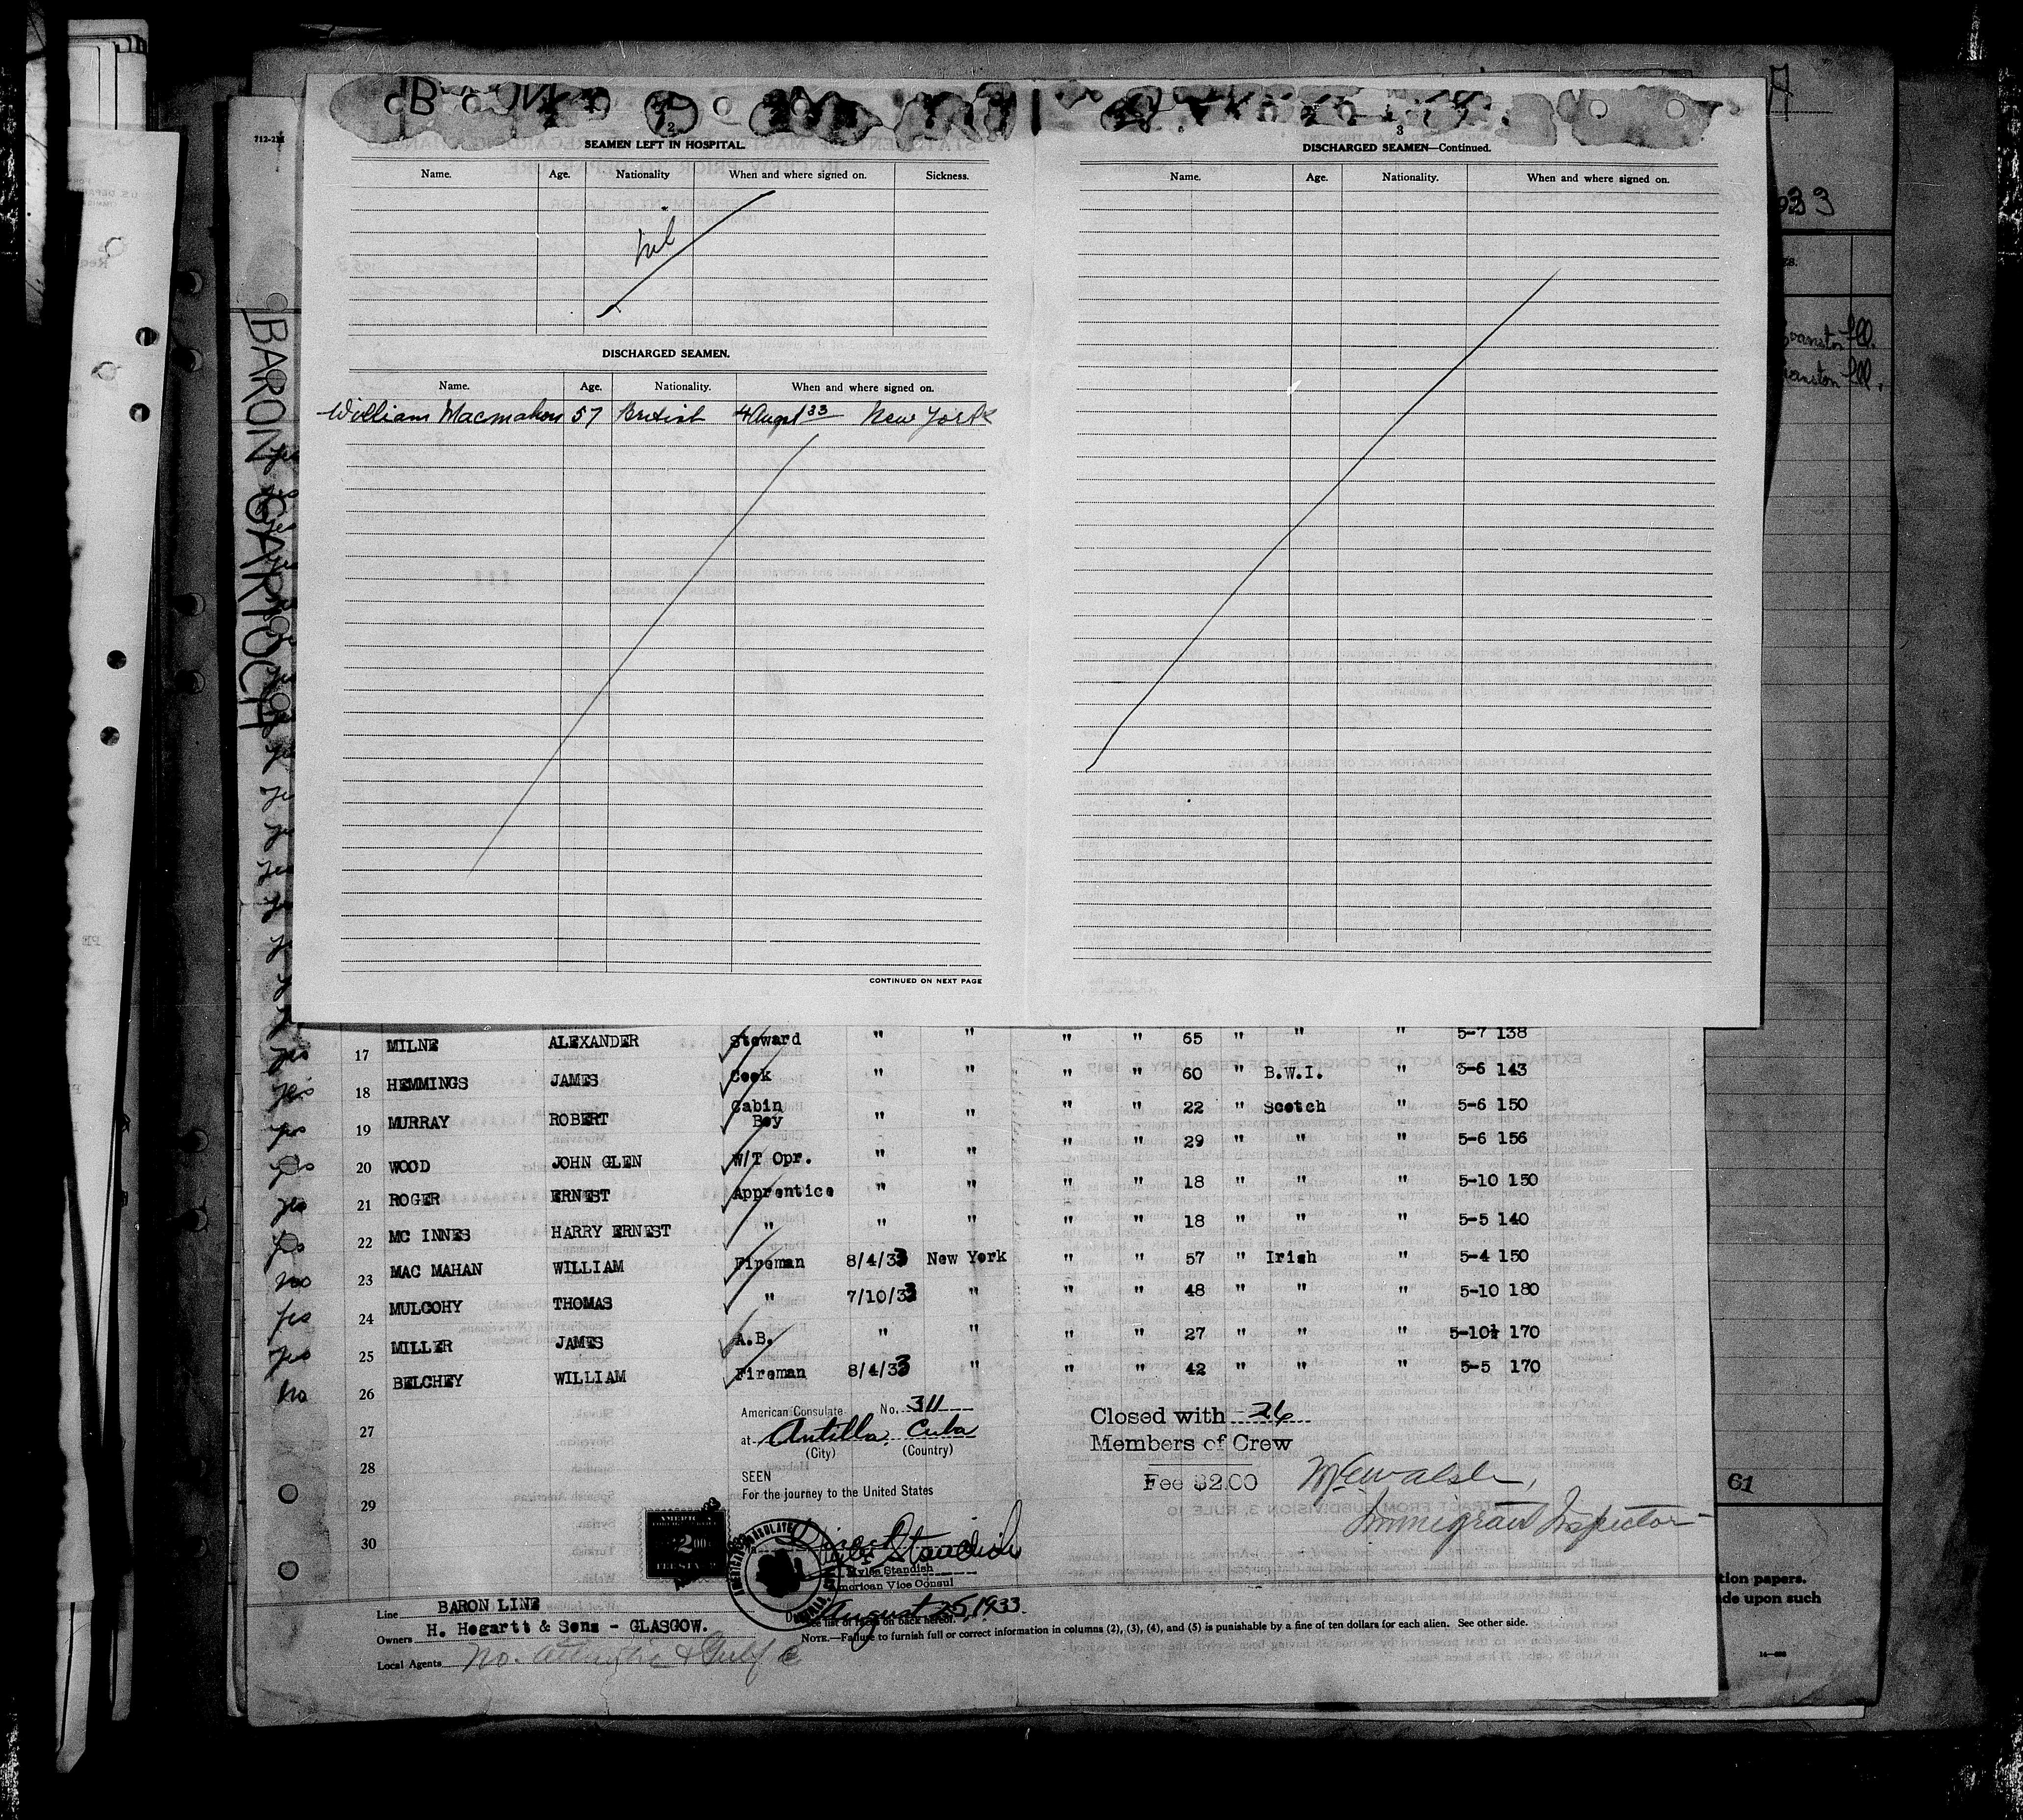 712-211
BARON GARTOCH
2
SEAMEN LEFT IN HOSPITAL.
Name. Age. Nationality When and where signed on. Sickness.
nil
DISCHARGED SEAMEN.
Name. Age. Nationality. When and where signed on.
William Macmahon 57 British 4 Augst 33 New York
CONTINUED ON NEXT PAGE
3
DISCHARGED SEAMEN—Continued.
Name. Age. Nationality. When and where signed on.
933
Evanston Ill.
Evanston Ill.
yes 17 MILNE ALEXANDER Steward " " " " 65 " " " 5-7 138
yes 18 HEMMINGS JAMES Cook " " " " 60 " B.W.I. " 5-6 143
yes 19 MURRAY ROBERT Cabin Boy " " " " 22 " Scotch " 5-6 150
yes 20 WOOD JOHN GLEN W/T Opr. " " " " 29 " " " 5-6 156
yes 21 ROGER ERNEST Apprentice " " " " 18 " " " 5-10 150
yes 22 MC INNES HARRY ERNEST " " " " " 18 " " " 5-5 140
no 23 MAC MAHAN WILLIAM Fireman 8/4/33 New York " " 57 " Irish " 5-4 150
yes 24 MULCOHY THOMAS " 7/10/33 " " " 48 " " " 5-10 180
yes 25 MILLER JAMES A.B. " " " " 27 " " " 5-10½ 170
no 26 BELCHEY WILLIAM Fireman 8/4/33 " " " 42 " " " 5-5 170
27
28
29
30
American Consulate No. 311
at Antilla, Cuba
(City) (Country)
SEEN
For the journey to the United States
Myles Standish
Myles Standish
American Vice Consul
August 25, 1933.
Closed with 26
Members of Crew
Fee $2.00
Immigrant Inspector
61
Line BARON LINE
Owners H. Hogartt & Sons - GLASGOW.
Local Agents No. Atlantic & Gulf
See list of races on back hereof.
NOTE.—Failure to furnish full or correct information in columns (2), (3), (4), and (5) is punishable by a fine of ten dollars for each alien. See other side.
tion papers.
de upon such